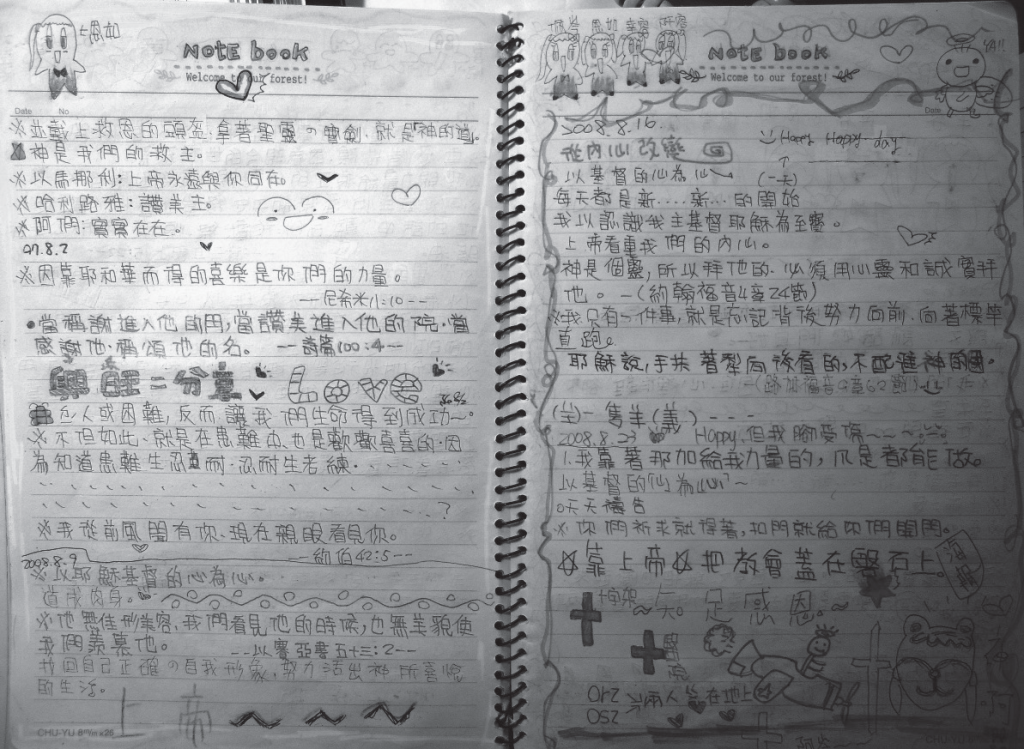 恩如
NOTE book
Welcome to our forest!
Date No
※並戴上救恩的頭盔,拿著聖靈の寶劍,就是神的道。
神是我們的救主。
※以馬那利:上帝永遠與你同在。
※哈利路雅:讚美主。
※阿們:實實在在。
97.8.2
※因靠耶和華而得的喜樂是你們的力量。
--尼希米8:10--
•當稱謝進入他的門,當讚美進入他的院。當
感謝他,稱頌他的名。 --詩篇100:4--
興旺=分享
人或困難,反而讓我們生命得到成功~。
※不但如此,就是在患難中,也是歡歡喜喜的,因
為知道患難生忍耐,忍耐生老練
?
※我從前風聞有你,現在親眼看見你。
--約伯42:5--
2008.8.9
※以耶穌基督的心為心。
道成肉身。
※他無佳形美容,我們看見他的時候,也無美貌使
我們羨慕他。 --以賽亞書五十三:2--
找回自己正確の自我形象,努力活出神所喜悅
的生活。
上帝
CHU-YU
NOTE book
Welcome to our forest!
Date
2008.8.16
Happy Happy day
從內心改變
以基督的心為心 (一天)
每天都是新....新...的開始
我以認識我主基督耶穌為至寶。
上帝看重我們的內心。
神是個靈,所以拜他的,必須用心靈和誠實拜
他。-(約翰福音4章24節)
※我只有一件事,就是忘記背後努力向前,向著標竿
直跑。
耶穌說,手扶著犁向後看的,不配進神的國。
(路加福音9章62節)
一隻羊(義)----
2008.8.23 Happy,但我腳受傷~~~
1.我靠著那加給我力量的,凡是都能做。
以基督的心為心~
天天禱告
※你們祈求就得著,叩門就給你們開門。
靠上帝 把教會蓋在磐石上。
十字架
~矢。足感恩。~
Orz
OSZ
兩人坐在地上